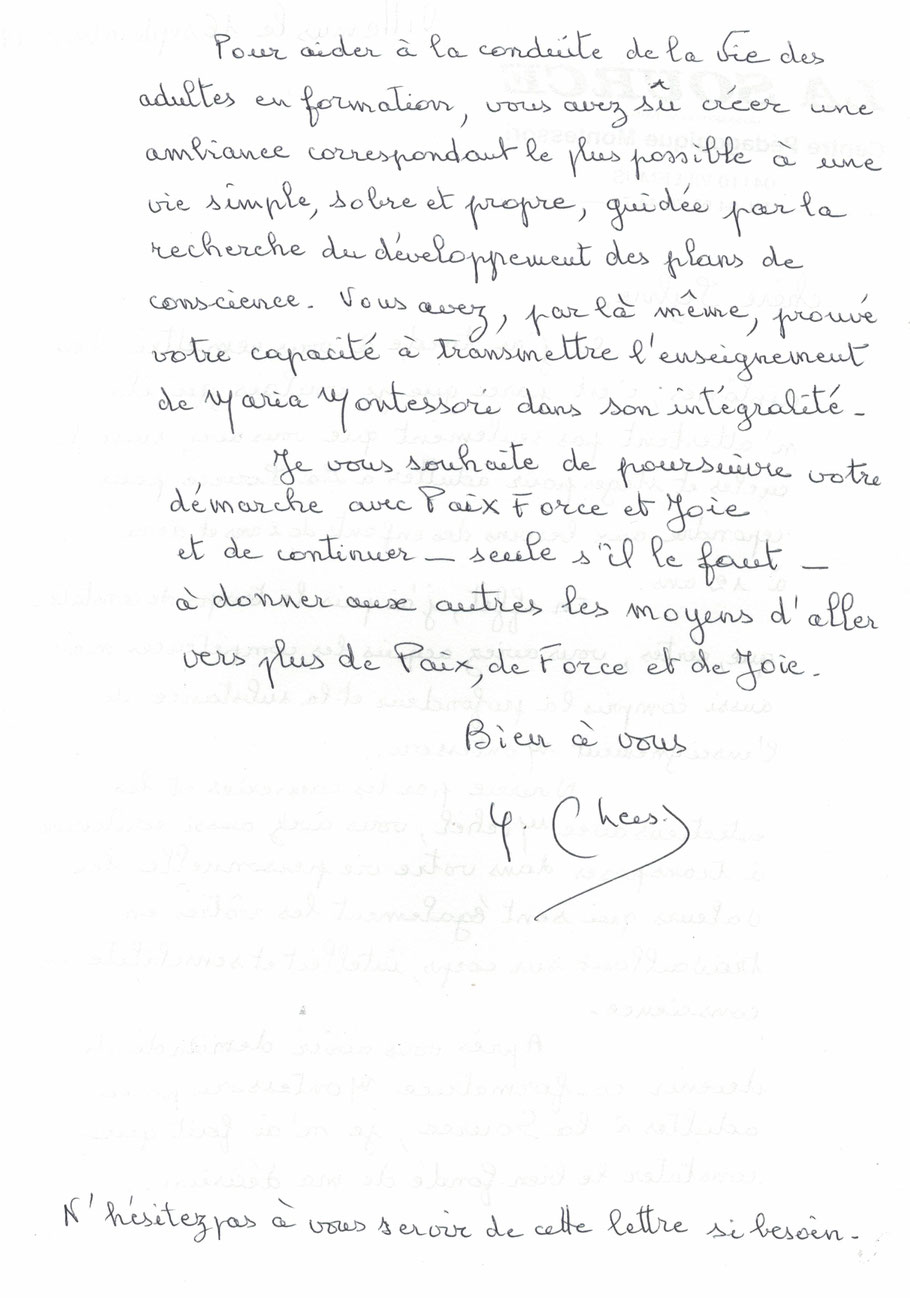 Pour aider à la conduite de la Vie des
adultes en formation, vous avez sû créer une
ambiance correspondant le plus possible à une
vie simple, sobre et propre, guidée par la
recherche du développement des plans de
conscience. Vous avez, par là même, prouvé
votre capacité à transmettre l'enseignement
de Maria Montessori dans son intégralité -
Je vous souhaite de poursuivre votre
démarche avec Paix Force et Joie
et de continuer - seule s'il le faut -
à donner aux autres les moyens d'aller
vers plus de Paix, de Force et de Joie.
Bien à vous
N'hésitez pas à vous servir de cette lettre si besoin -